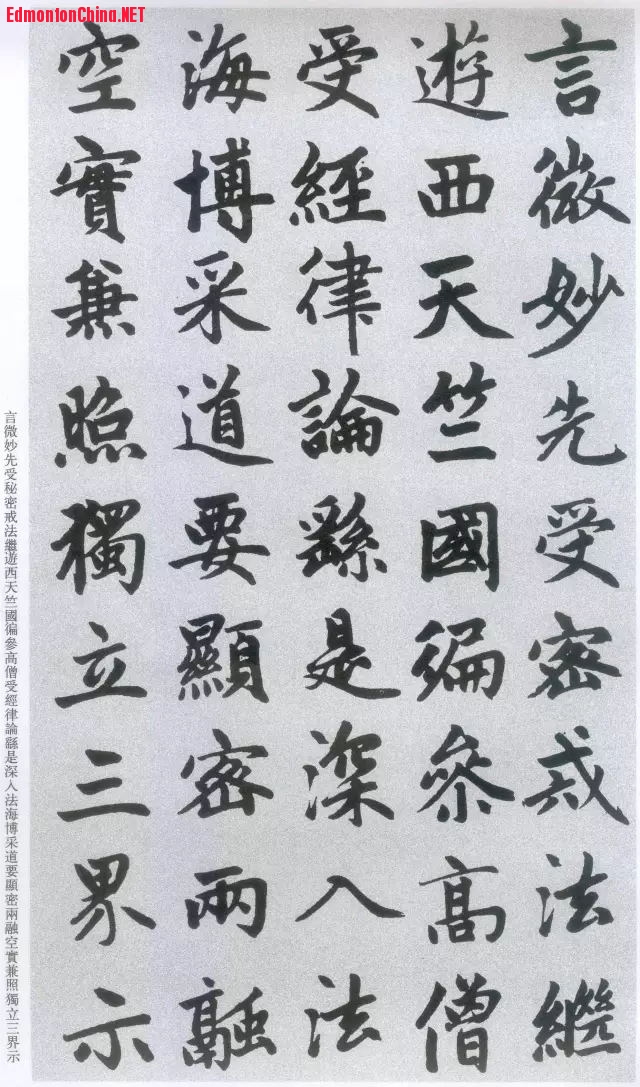 EdmontonChina.NET
言微妙先受密戒法繼
遊西天竺國徧參高僧
受經律論繇是深入法
海博采道要顯密兩融
空實兼照獨立三界示
言微妙先受秘密戒法繼遊西天竺國徧參高僧受經律論繇是深入法海博采道要顯密兩融空實兼照獨立三界示